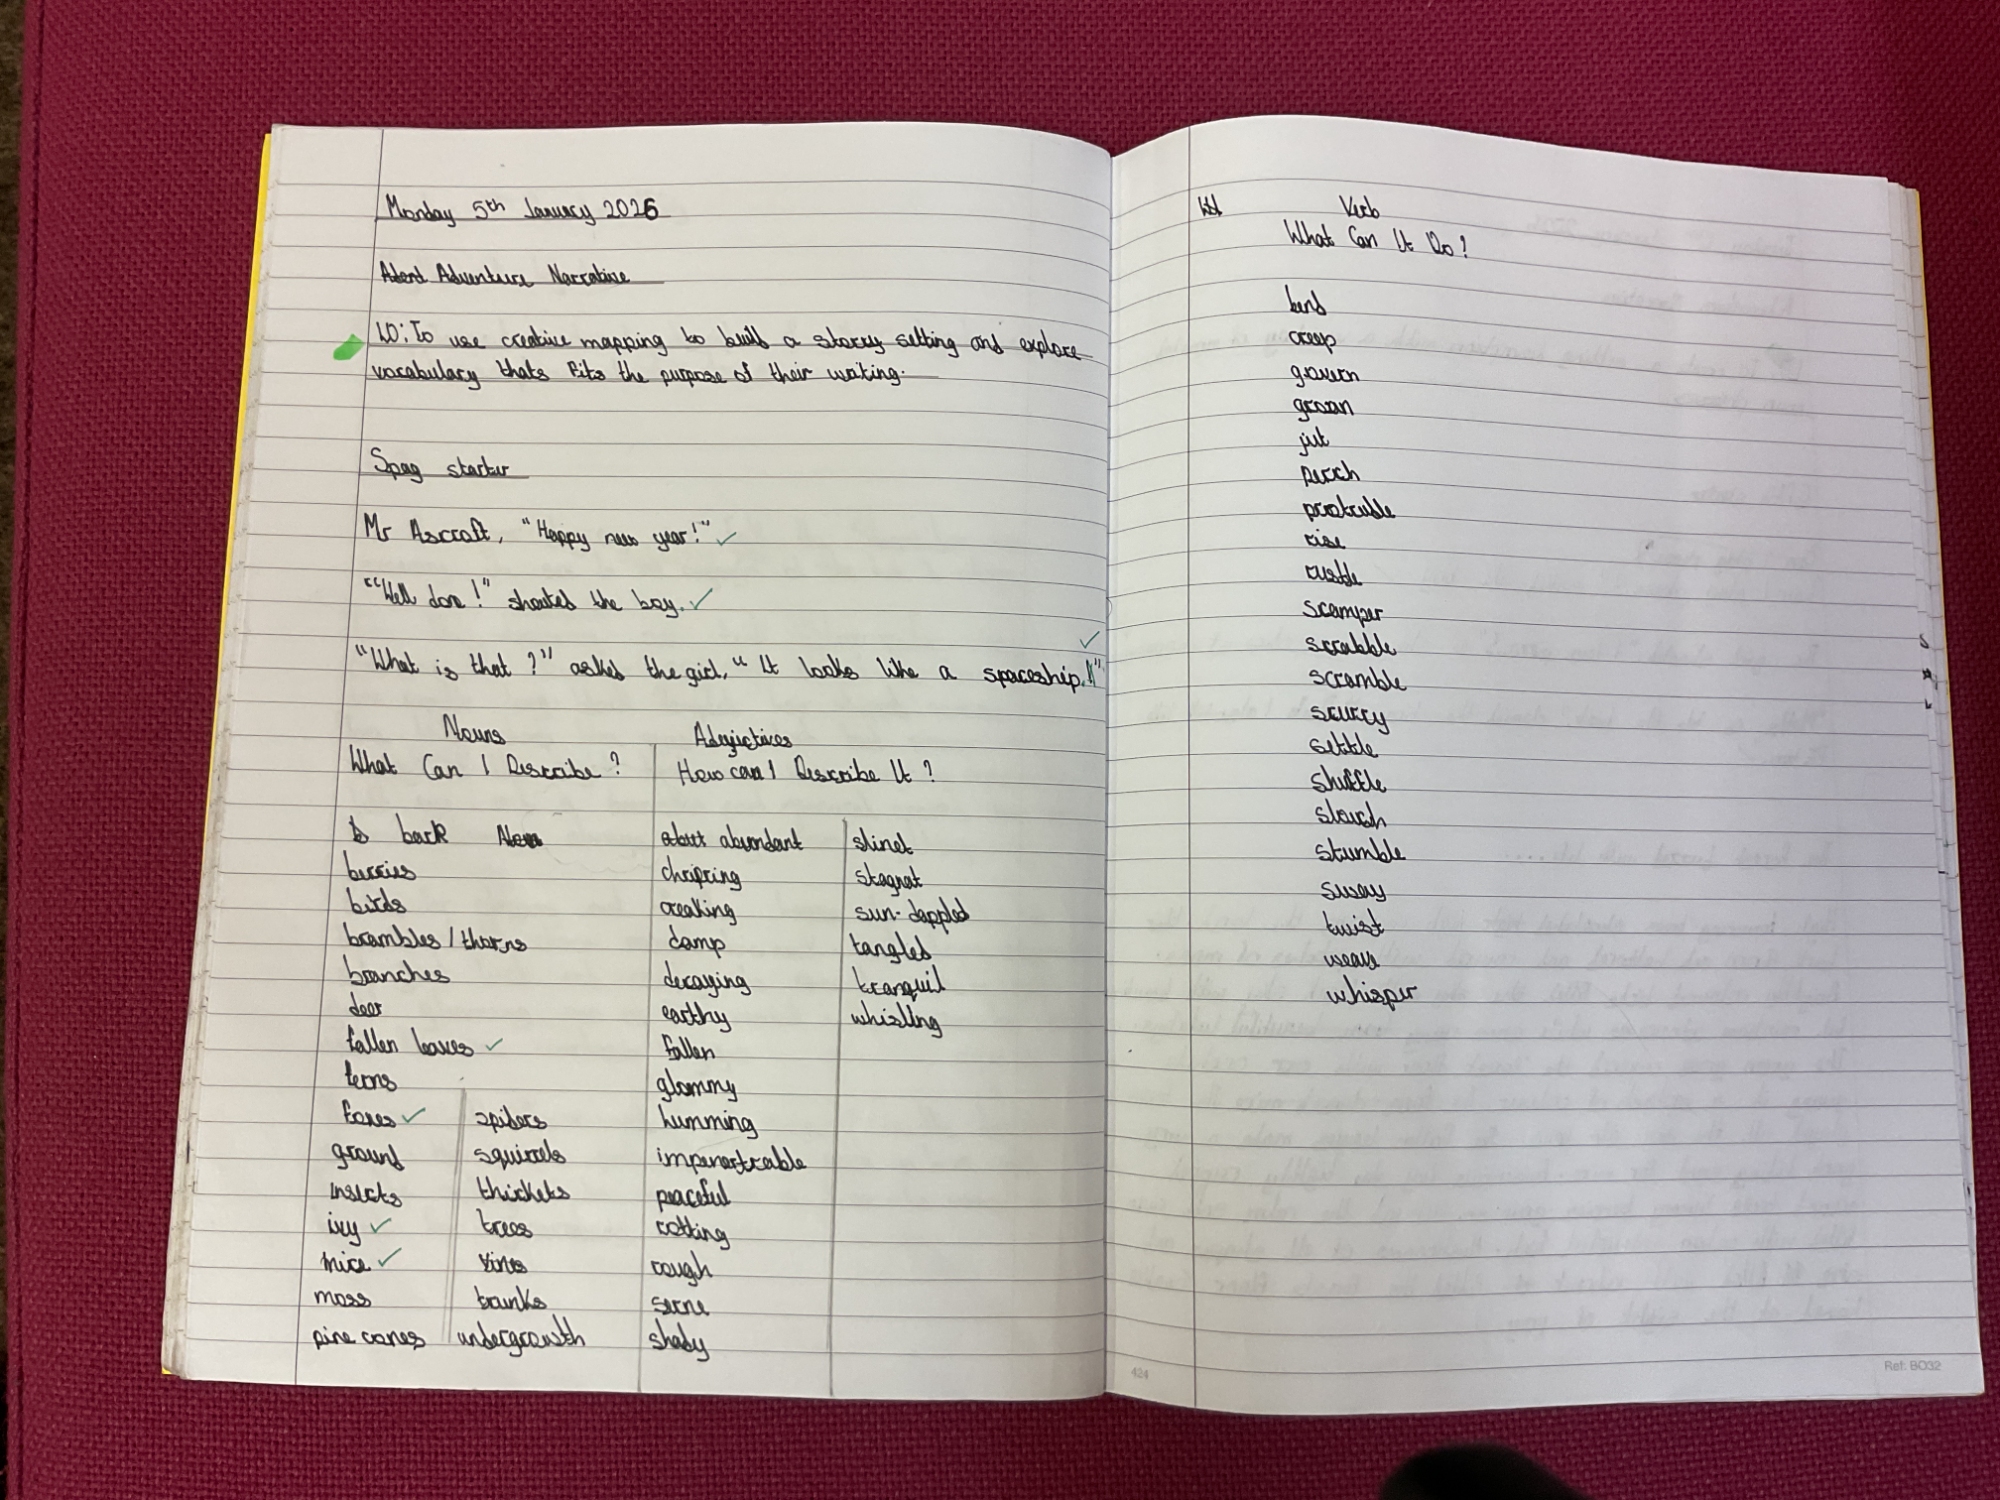 Monday 5th January 2026
Adventure Narrative
LO: To use creative mapping to build a story setting and explore
vocabulary thats fits the purpose of their writing.
Spag starter
Mr Ascroft, "Happy new year!" ✓
"Well done!" shouted the boy. ✓
"What is that?" asked the girl, "It looks like a spaceship!" ✓
Nouns
What Can I Describe?
back
berries
birds
brambles / thorns
branches
deer
fallen leaves ✓
ferns
foxes ✓
ground
insects
ivy ✓
mice ✓
moss
pine cones
spiders
squirrels
thickets
trees
vines
trunks
undergrowth
Adejictives
How can I Describe It?
abundant
chripring
creaking
damp
decaying
earthy
fallen
glommy
humming
impenertrable
peaceful
rotting
rough
serne
shady
slinet
stagnat
sun-dappled
tangled
tranquil
whisling
Verb
What Can It Do?
bend
creep
govern
groan
jut
perch
protruble
rise
rustle
scamper
scrabble
scramble
scurry
settle
shuffle
slouch
stumble
sway
twist
weave
whisper
424
Ref: BO32